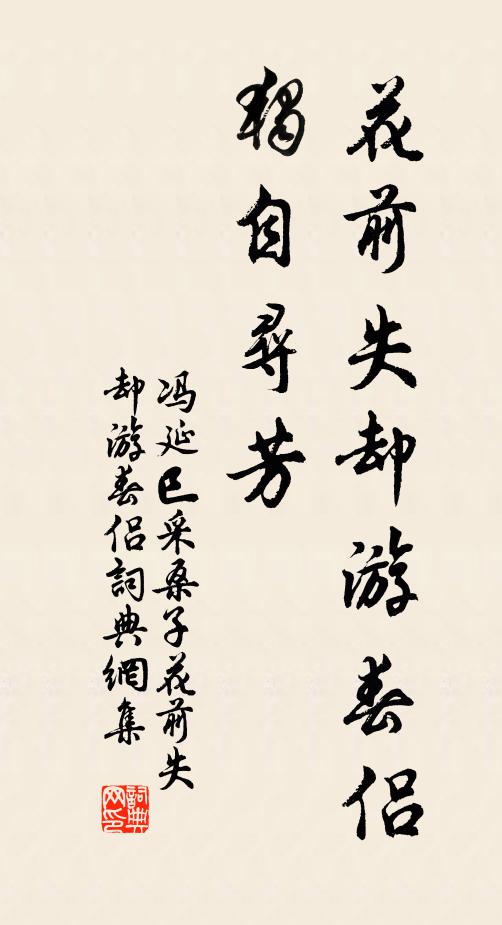 花前失却游春侣
獨自尋芳
冯延巳采桑子花前失
却游春侣詞典網集
詞典
网印